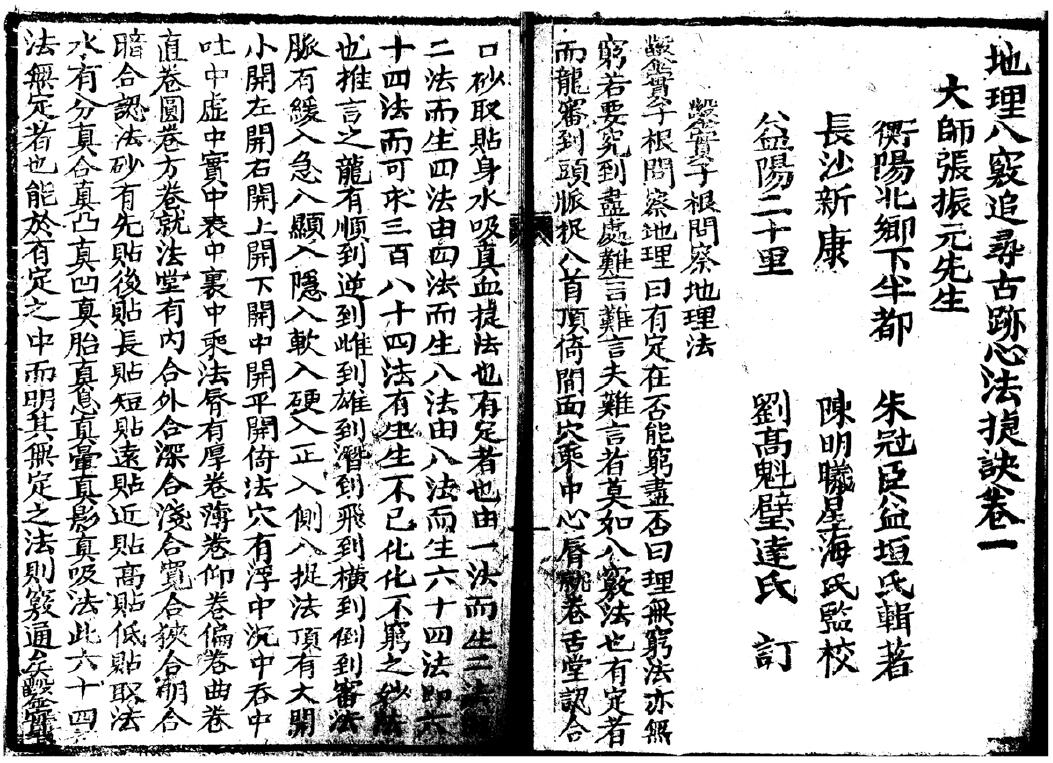 地理八竅追尋古跡心法捷訣卷一
大師張振元先生
衡陽北鄉下半都 朱冠臣益垣氏輯著
長沙新康 陳明曦星海氏監校
益陽二十里 劉高魁璧達氏 訂
鑿實子根問察地理法
鑿實子根問察地理曰有定在否能窮盡否曰理無窮法亦無
窮若要究到盡處難言難言夫難言者莫如八竅法也有定者
而龍審到頭脈捉入首頂倚開面穴乘中心唇就卷舌堂認合
口砂取貼身水吸真血捷法也有定者也由一法而生二法
二法而生四法由四法而生八法由八法而生六十四法即六
十四法而可求三百八十四法有生生不已化化不窮之妙法
也推言之龍有順到逆到雌到雄到潛到飛到橫到倒到審法
脈有緩入急入顯入隱入軟入硬入正入側入捉法頂有大開
小開左開右開上開下開中開平開倚法穴有浮中沉中吞中
吐中虛中實中表中裏中乘法唇有厚卷薄卷仰卷偏卷曲卷
直卷圓卷方卷就法堂有內合外合深合淺合寬合狹合明合
暗合認法砂有先貼後貼長貼短貼遠貼近貼高貼低貼取法
水有分真合真凸真凹真胎真息真暈真影真吸法此六十四
法無定者也能於有定之中而明其無定之法則竅通矣鑿實